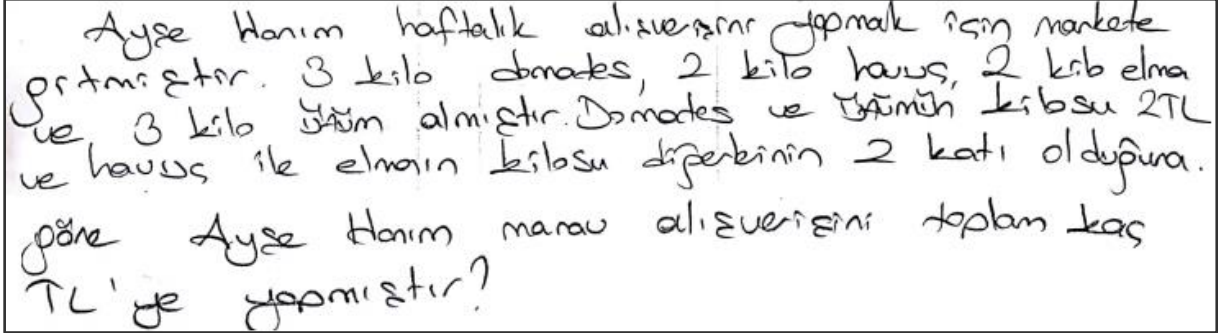 Ayşe Hanım haftalık alışverişini yapmak için markete
gitmiştir. 3 kilo domates, 2 kilo havuç, 2 kilo elma
ve 3 kilo üzüm almıştır. Domates ve üzümün kilosu 2TL
ve havuç ile elmanın kilosu diğerkinin 2 katı olduğuna.
göre Ayşe Hanım manav alışverişini toplam kaç
TL'ye yapmıştır?